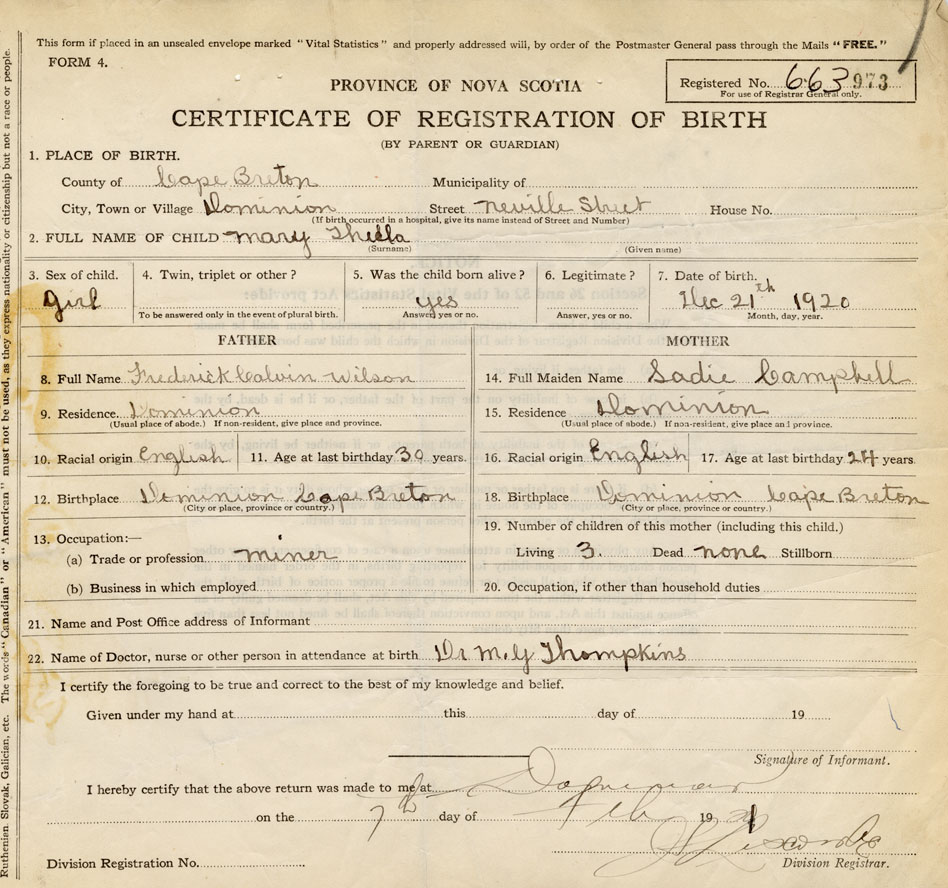 This form if placed in an unsealed envelope marked "Vital Statistics" and properly addressed will, by order of the Postmaster General pass through the Mails "FREE."
FORM 4.
PROVINCE OF NOVA SCOTIA
Registered No. 663 973
For use of Registrar General only.
CERTIFICATE OF REGISTRATION OF BIRTH
(BY PARENT OR GUARDIAN)
1. PLACE OF BIRTH.
County of Cape Breton Municipality of
City, Town or Village Dominion Street Neville Street House No.
(If birth occurred in a hospital, give its name instead of Street and Number)
2. FULL NAME OF CHILD Mary
(Surname) (Given name)
3. Sex of child. 4. Twin, triplet or other? 5. Was the child born alive? 6. Legitimate? 7. Date of birth.
Girl yes Dec 21th 1920
To be answered only in the event of plural birth. Answer, yes or no. Answer, yes or no. Month, day, year.
FATHER MOTHER
8. Full Name Frederick Calvin Wilson 14. Full Maiden Name Sadie Campbell
9. Residence. Dominion 15. Residence Dominion
(Usual place of abode.) If non-resident, give place and province. (Usual place of abode.) If non-resident, give place and province.
10. Racial origin English 11. Age at last birthday 30 years. 16. Racial origin English 17. Age at last birthday 24 years.
12. Birthplace Dominion Cape Breton 18. Birthplace Dominion Cape Breton
(City or place, province or country.) (City or place, province or country.)
13. Occupation:— 19. Number of children of this mother (including this child.)
(a) Trade or profession miner Living 3. Dead none Stillborn
(b) Business in which employed 20. Occupation, if other than household duties
21. Name and Post Office address of Informant
22. Name of Doctor, nurse or other person in attendance at birth Dr M. G Thompkins
I certify the foregoing to be true and correct to the best of my knowledge and belief.
Given under my hand at this day of 19
Signature of Informant.
I hereby certify that the above return was made to me at
on the 7th day of Feb 1921
Division Registration No. Division Registrar.
Ruthenian, Slovak, Galician, etc. The words "Canadian" or "American" must not be used, as they express nationality or citizenship but not a race or people.